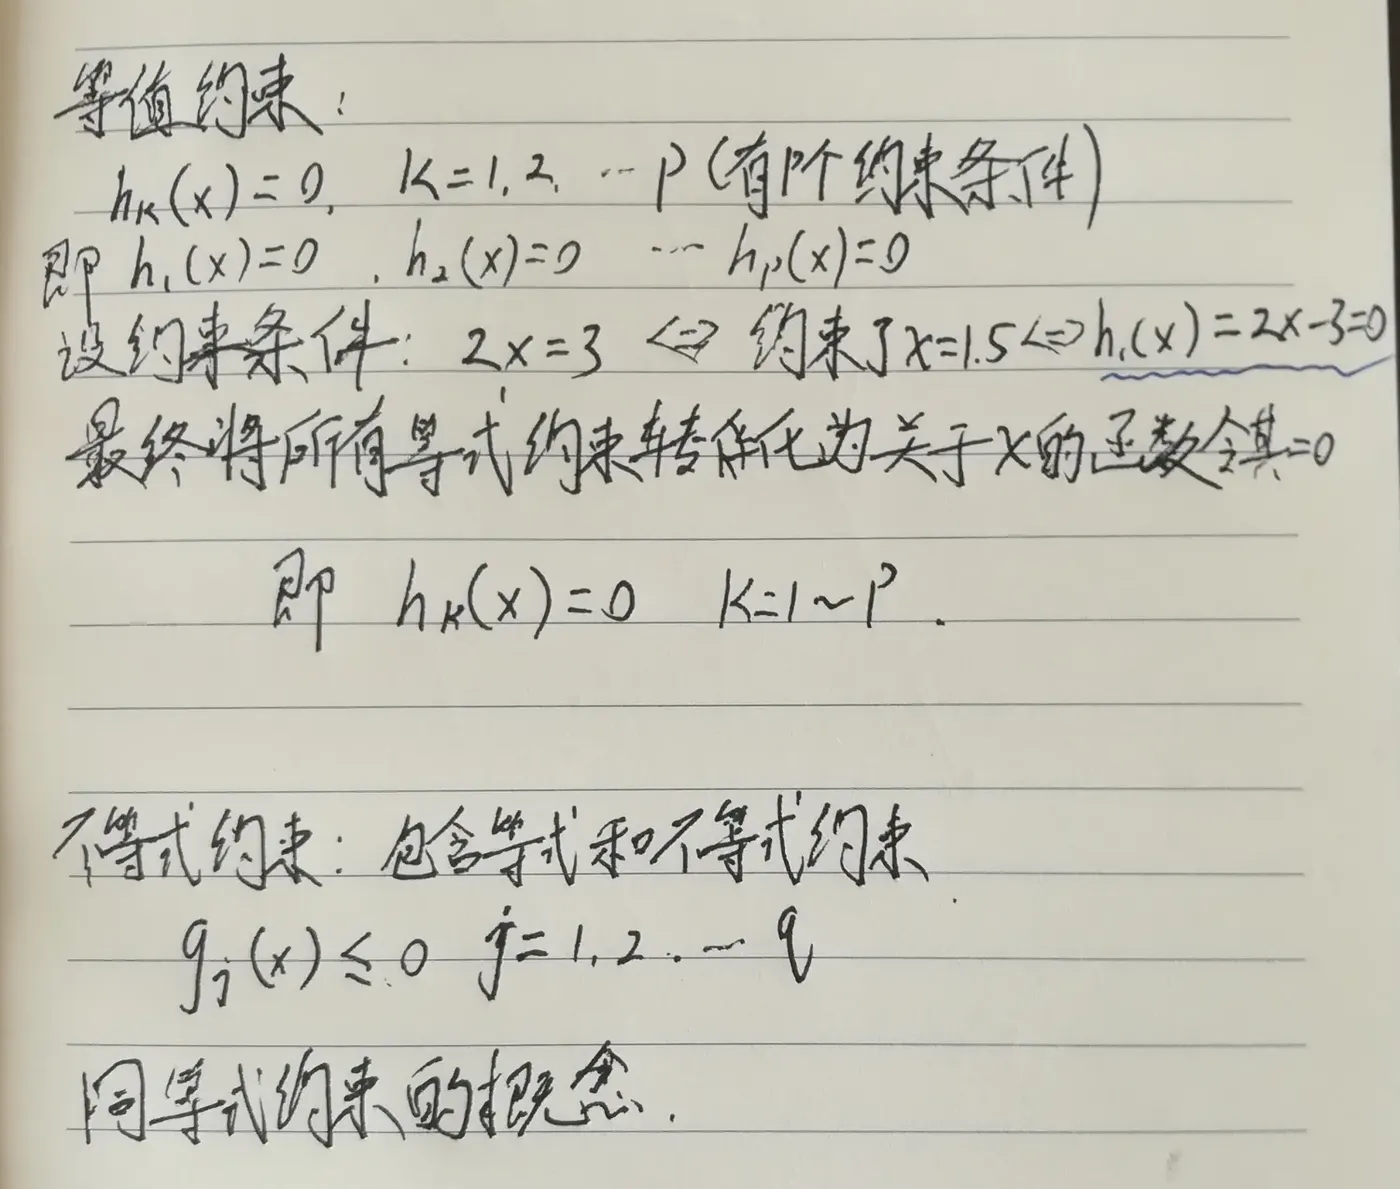 等值约束:
hₖ(x)=0, K=1,2, … P (有P个约束条件)
即 h₁(x)=0 , h₂(x)=0 … hₚ(x)=0
设约束条件: 2x=3 <=> 约束了x=1.5 <=> h₁(x)=2x-3=0
最终将所有等式约束转化为关于x的函数令其=0
即 hₖ(x)=0 K=1~P.
不等式约束: 包含等式和不等式约束.
gⱼ(x)≤0 j=1,2,…q
同等式约束的概念.